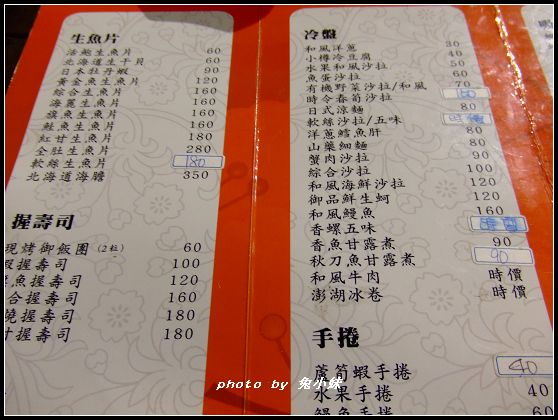 生魚片
活鮑生魚片 60
北海道生干貝 60
日本牡丹蝦 90
黃金魚生魚片 120
綜合生魚片 160
海鱺生魚片 160
旗魚生魚片 160
鮭魚生魚片 160
紅甘生魚片 180
全肚生魚片 280
軟絲生魚片 180
北海道海膽 350
握壽司
現烤御飯團(2粒) 60
蝦握壽司 100
魚握壽司 120
合握壽司 160
燒握壽司 180
握壽司 180
冷盤
和風洋蔥 30
小樽冷豆腐 40
水果和風沙拉 50
魚蛋沙拉 60
有機野菜沙拉/和風 70
時令春筍沙拉
日式涼麵 80
軟絲沙拉/五味 時價
洋蔥鱈魚肝 80
山藥細麵 80
蟹肉沙拉 90
綜合沙拉 100
和風海鮮沙拉 120
御品鮮生蚵 120
和風鰻魚 160
香螺五味 時價
香魚甘露煮 90
秋刀魚甘露煮 90
和風牛肉 時價
澎湖冰卷 時價
手捲
蘆筍蝦手捲 40
水果手捲 40
鰻魚手捲
photo by 兔小妹